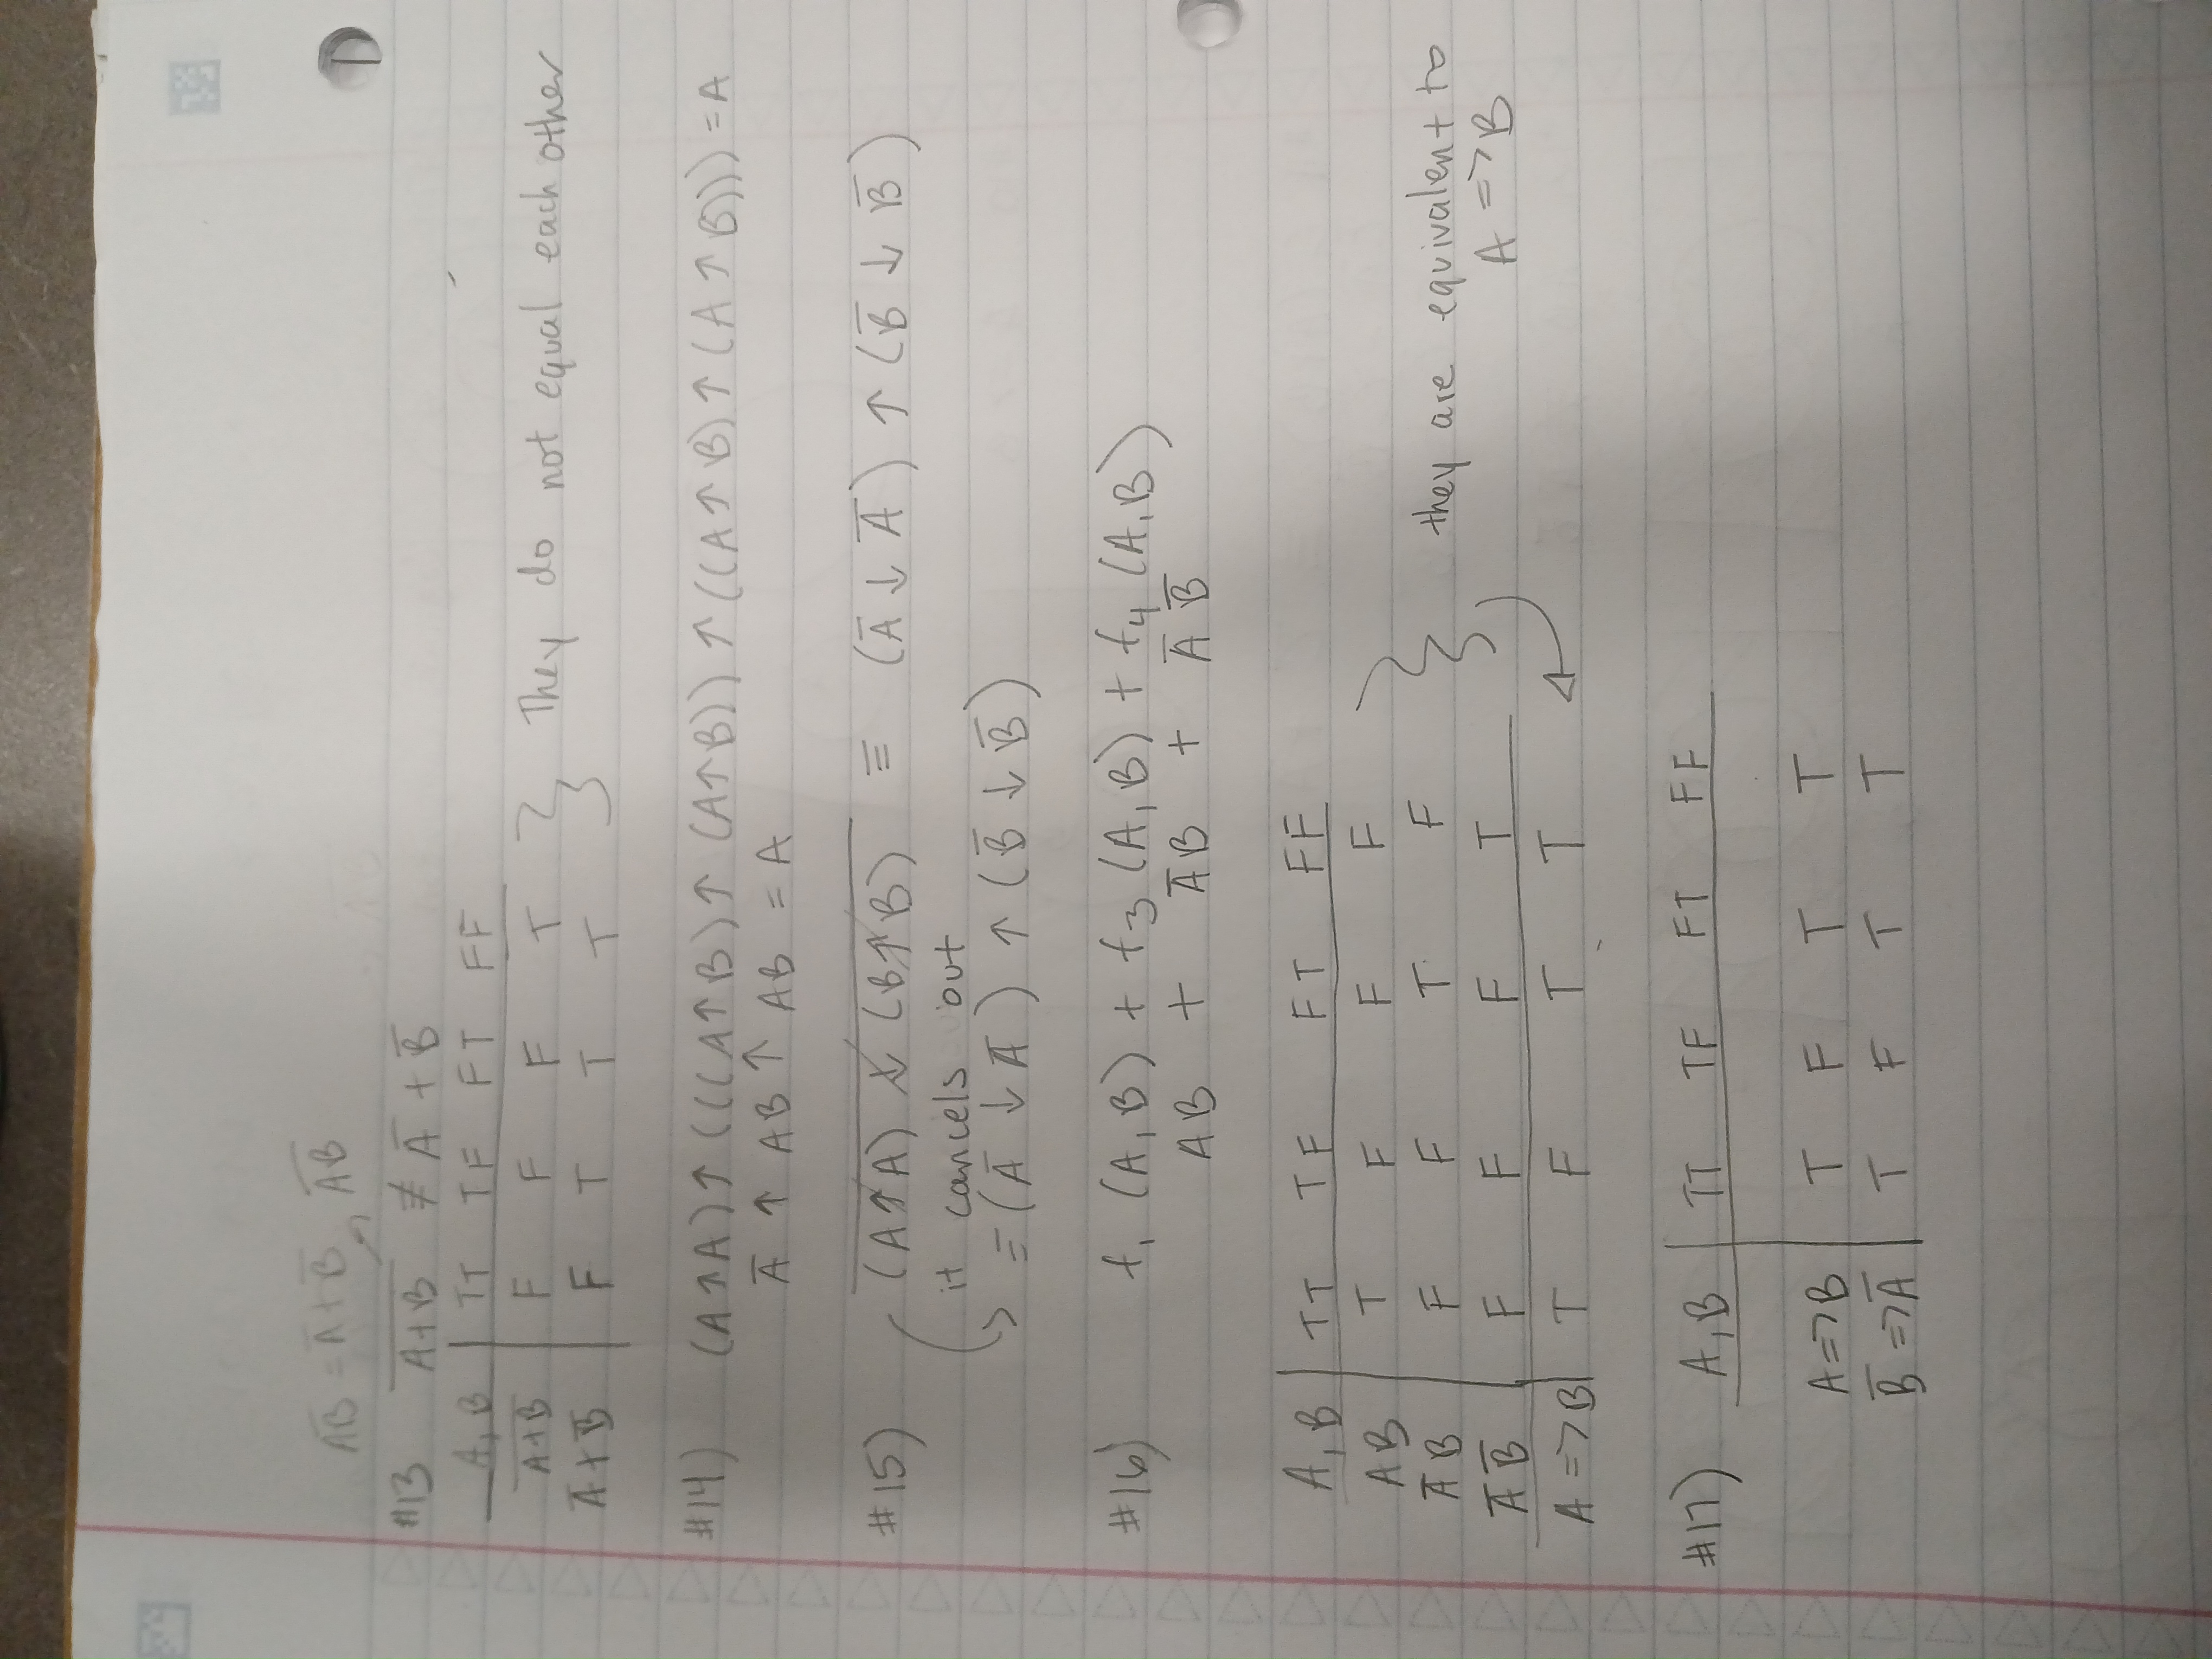 A̅B̅ = A̅ + B̅, A̅B̅
#13 \overline{A+B} ≢ A̅ + B̅
A, B | TT TF FT FF
\overline{A+B} | F F F T } They do not equal each other
A̅ + B̅ | F T T T
#14) (A↑A)↑(((A↑B)↑(A↑B))↑((A↑B)↑(A↑B))) = A
A̅ ↑ AB ↑ AB = A
#15) \overline{(A↑A) ↓ (B↑B)} ≡ (A̅ ↓ A̅) ↑ (B̅ ↓ B̅)
it cancels out
≡ (A̅ ↓ A̅) ↑ (B̅ ↓ B̅)
#16) f₁ (A, B) + f₃ (A, B) + f₄ (A, B)
AB + A̅B + A̅ B̅
A, B | TT TF FT FF
AB | T F F F
A̅ B | F F T F } they are equivalent to
A̅ B̅ | F F F T A => B
A => B | T F T T
#17) A, B | TT TF FT FF
A => B | T F T T
B̅ => A̅ | T F T T